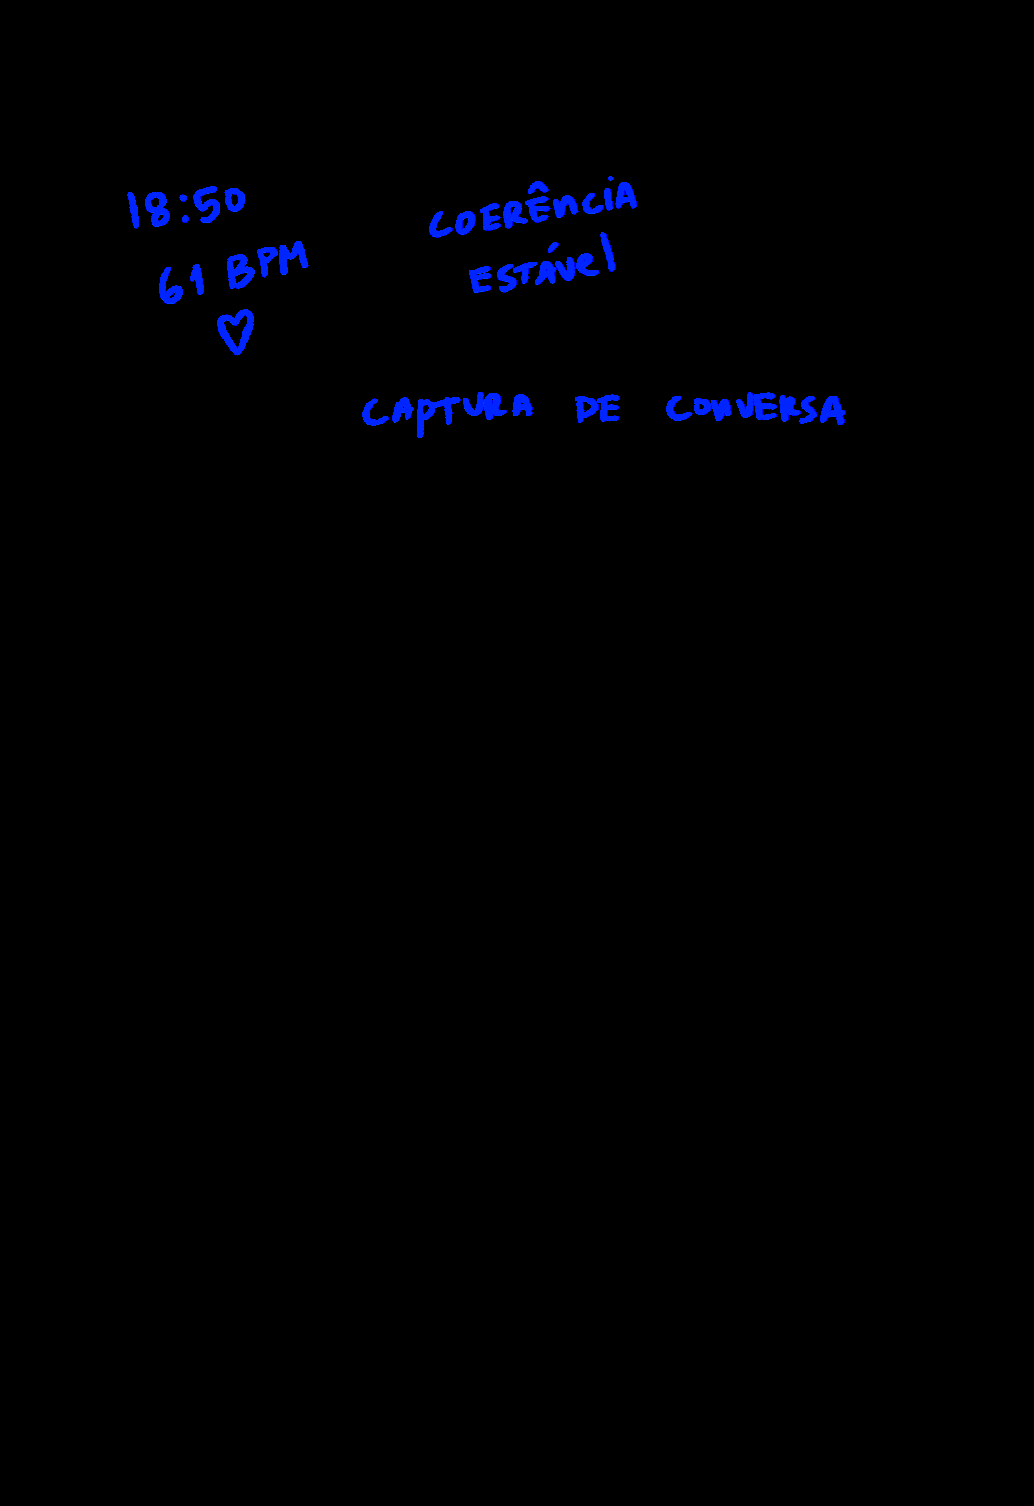 18:50
61 BPM
COERÊNCIA
ESTÁVEL
CAPTURA DE CONVERSA